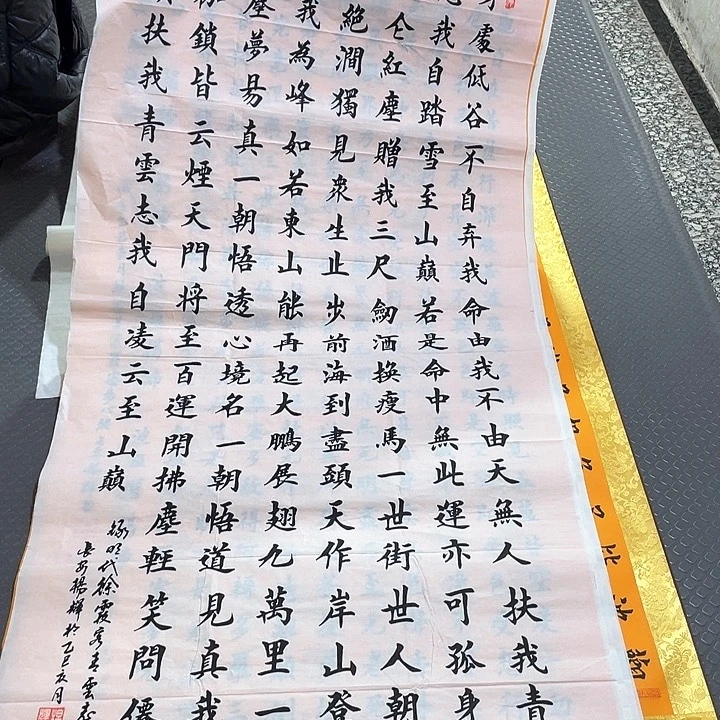 處低谷不自弃我命由我不由天無人扶我青
我自踏雪至山巔若是命中無此運亦可孤身
仑紅塵贈我三尺劒酒換瘦馬一世街世人朝
絕澗獨見衆生止步前海到盡頭天作岸山登
我為峰如若東山能再起大鵬展翅九萬里一
塵夢易真一朝悟透心境名一朝悟道見真我
鎖皆云煙天門将至百運開拂塵軽笑問僊
扶我青雲志我自凌云至山巔
録明代徐霞客青雲志
長安楊輝於乙巳夏月